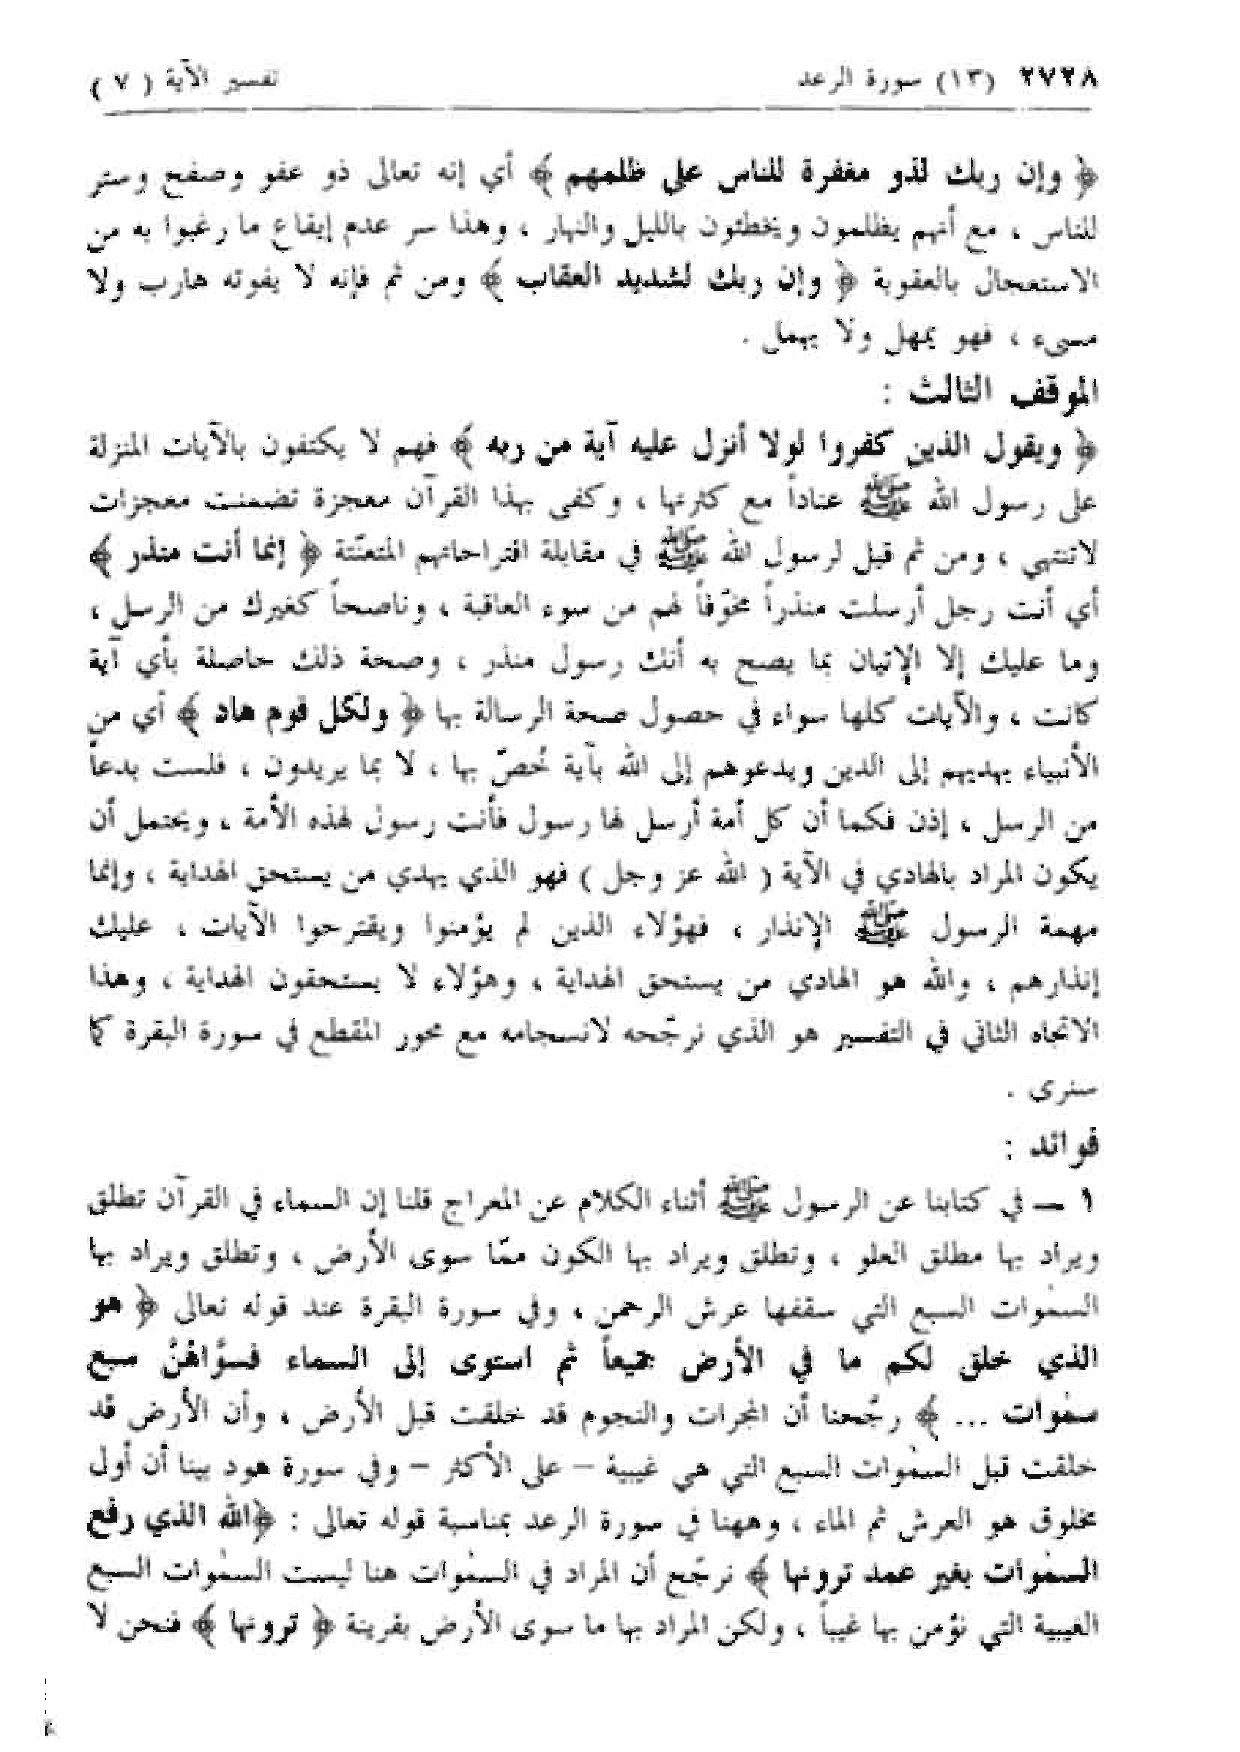 ٢٧٢٨ (١٣) سورة الرعد تفسير الآية ( ٧ )
﴿ وإن ربك لذو مغفرة للناس على ظلمهم ﴾ أي إنه تعالى ذو عفو وصفح وستر
للناس ، مع أنهم يظلمون ويخطئون بالليل والنهار ، وهذا سر عدم إيقاع ما رغبوا به من
الاستعجال بالعقوبة ﴿ وإن ربك لشديد العقاب ﴾ ومن ثم فإنه لا يفوته هارب ولا
مسىء ، فهو يمهل ولا يهمل .
الموقف الثالث :
﴿ ويقول الذين كفروا لولا أنزل عليه آية من ربه ﴾ فهم لا يكتفون بالآيات المنزلة
على رسول الله ﷺ عناداً مع كثرتها ، وكفى بهذا القرآن معجزة تضمنت معجزات
لاتنتهي ، ومن ثم قيل لرسول الله ﷺ في مقابلة اقتراحاتهم المتعنّتة ﴿ إنما أنت منذر ﴾
أي أنت رجل أرسلت منذراً مخوّفاً لهم من سوء العاقبة ، وناصحاً كغيرك من الرسل ،
وما عليك إلا الإتيان بما يصح به أنك رسول منذر ، وصحة ذلك حاصلة بأي آية
كانت ، والآيات كلها سواء في حصول صحة الرسالة بها ﴿ ولكل قوم هاد ﴾ أي من
الأنبياء يهديهم إلى الدين ويدعوهم إلى الله بآية خُصّ بها ، لا بما يريدون ، فلست بدعاً
من الرسل ، إذن فكما أن كل أمة أرسل لها رسول فأنت رسول لهذه الأمة ، ويحتمل أن
يكون المراد بالهادي في الآية ( الله عز وجل ) فهو الذي يهدي من يستحق الهداية ، وإنما
مهمة الرسول ﷺ الإنذار ، فهؤلاء الذين لم يؤمنوا ويقترحوا الآيات ، عليك
إنذارهم ، والله هو الهادي من يستحق الهداية ، وهؤلاء لا يستحقون الهداية ، وهذا
الاتجاه الثاني في التفسير هو الذي نرجّحه لانسجامه مع محور المقطع في سورة البقرة كما
سنرى .
فوائد :
١ ــ في كتابنا عن الرسول ﷺ أثناء الكلام عن المعراج قلنا إن السماء في القرآن تطلق
ويراد بها مطلق العلو ، وتطلق ويراد بها الكون ممّا سوى الأرض ، وتطلق ويراد بها
السمٰوات السبع التي سقفها عرش الرحمن ، وفي سورة البقرة عند قوله تعالى ﴿ هو
الذي خلق لكم ما في الأرض جميعاً ثم استوى إلى السماء فسوَّاهُنَّ سبع
سمٰوات ... ﴾ رجّحنا أن المجرات والنجوم قد خلقت قبل الأرض ، وأن الأرض قد
خلقت قبل السمٰوات السبع التي هي غيبية – على الأكثر – وفي سورة هود بينا أن أول
مخلوق هو العرش ثم الماء ، وههنا في سورة الرعد بمناسبة قوله تعالى : ﴿الله الذي رفع
السمٰوات بغير عمد ترونها ﴾ نرجّح أن المراد في السمٰوات هنا ليست السمٰوات السبع
الغيبية التي نؤمن بها غيباً ، ولكن المراد بها ما سوى الأرض بقرينة ﴿ ترونها ﴾ فنحن لا